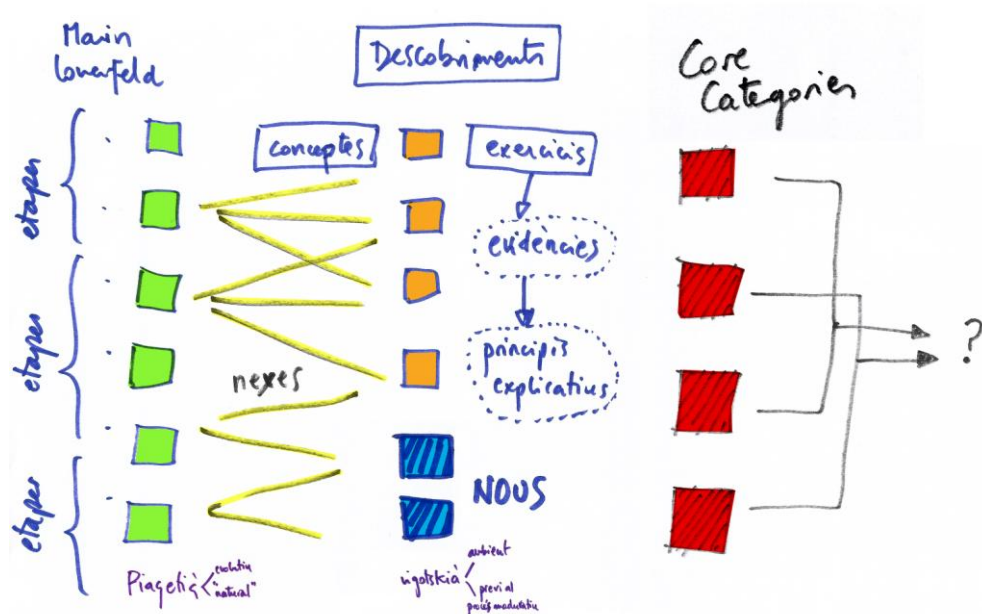 Marin
Lowenfeld
Descobriments
Core
Categories
etapes
etapes
etapes
conceptes
exercicis
evidències
principis
explicatius
nexes
NOUS
?
Piagetià
evolutiu
"natural"
vigotskià
ambient
previ al
procés maduratiu